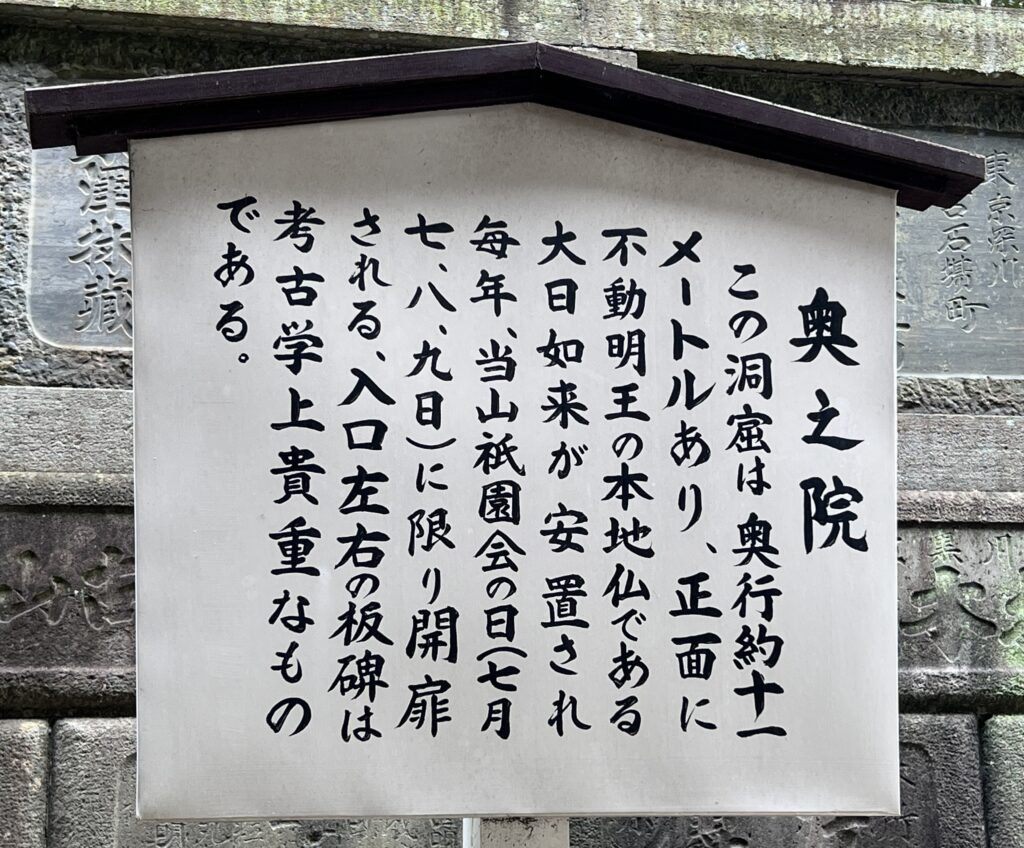 奥之院
この洞窟は奥行約十一
メートルあり、正面に
不動明王の本地仏である
大日如来が安置され
毎年、当山祇園会の日(七月
七、八、九日)に限り開扉
される、入口左右の板碑は
考古学上貴重なもの
である。
東京深川
古石場町
津林蔵